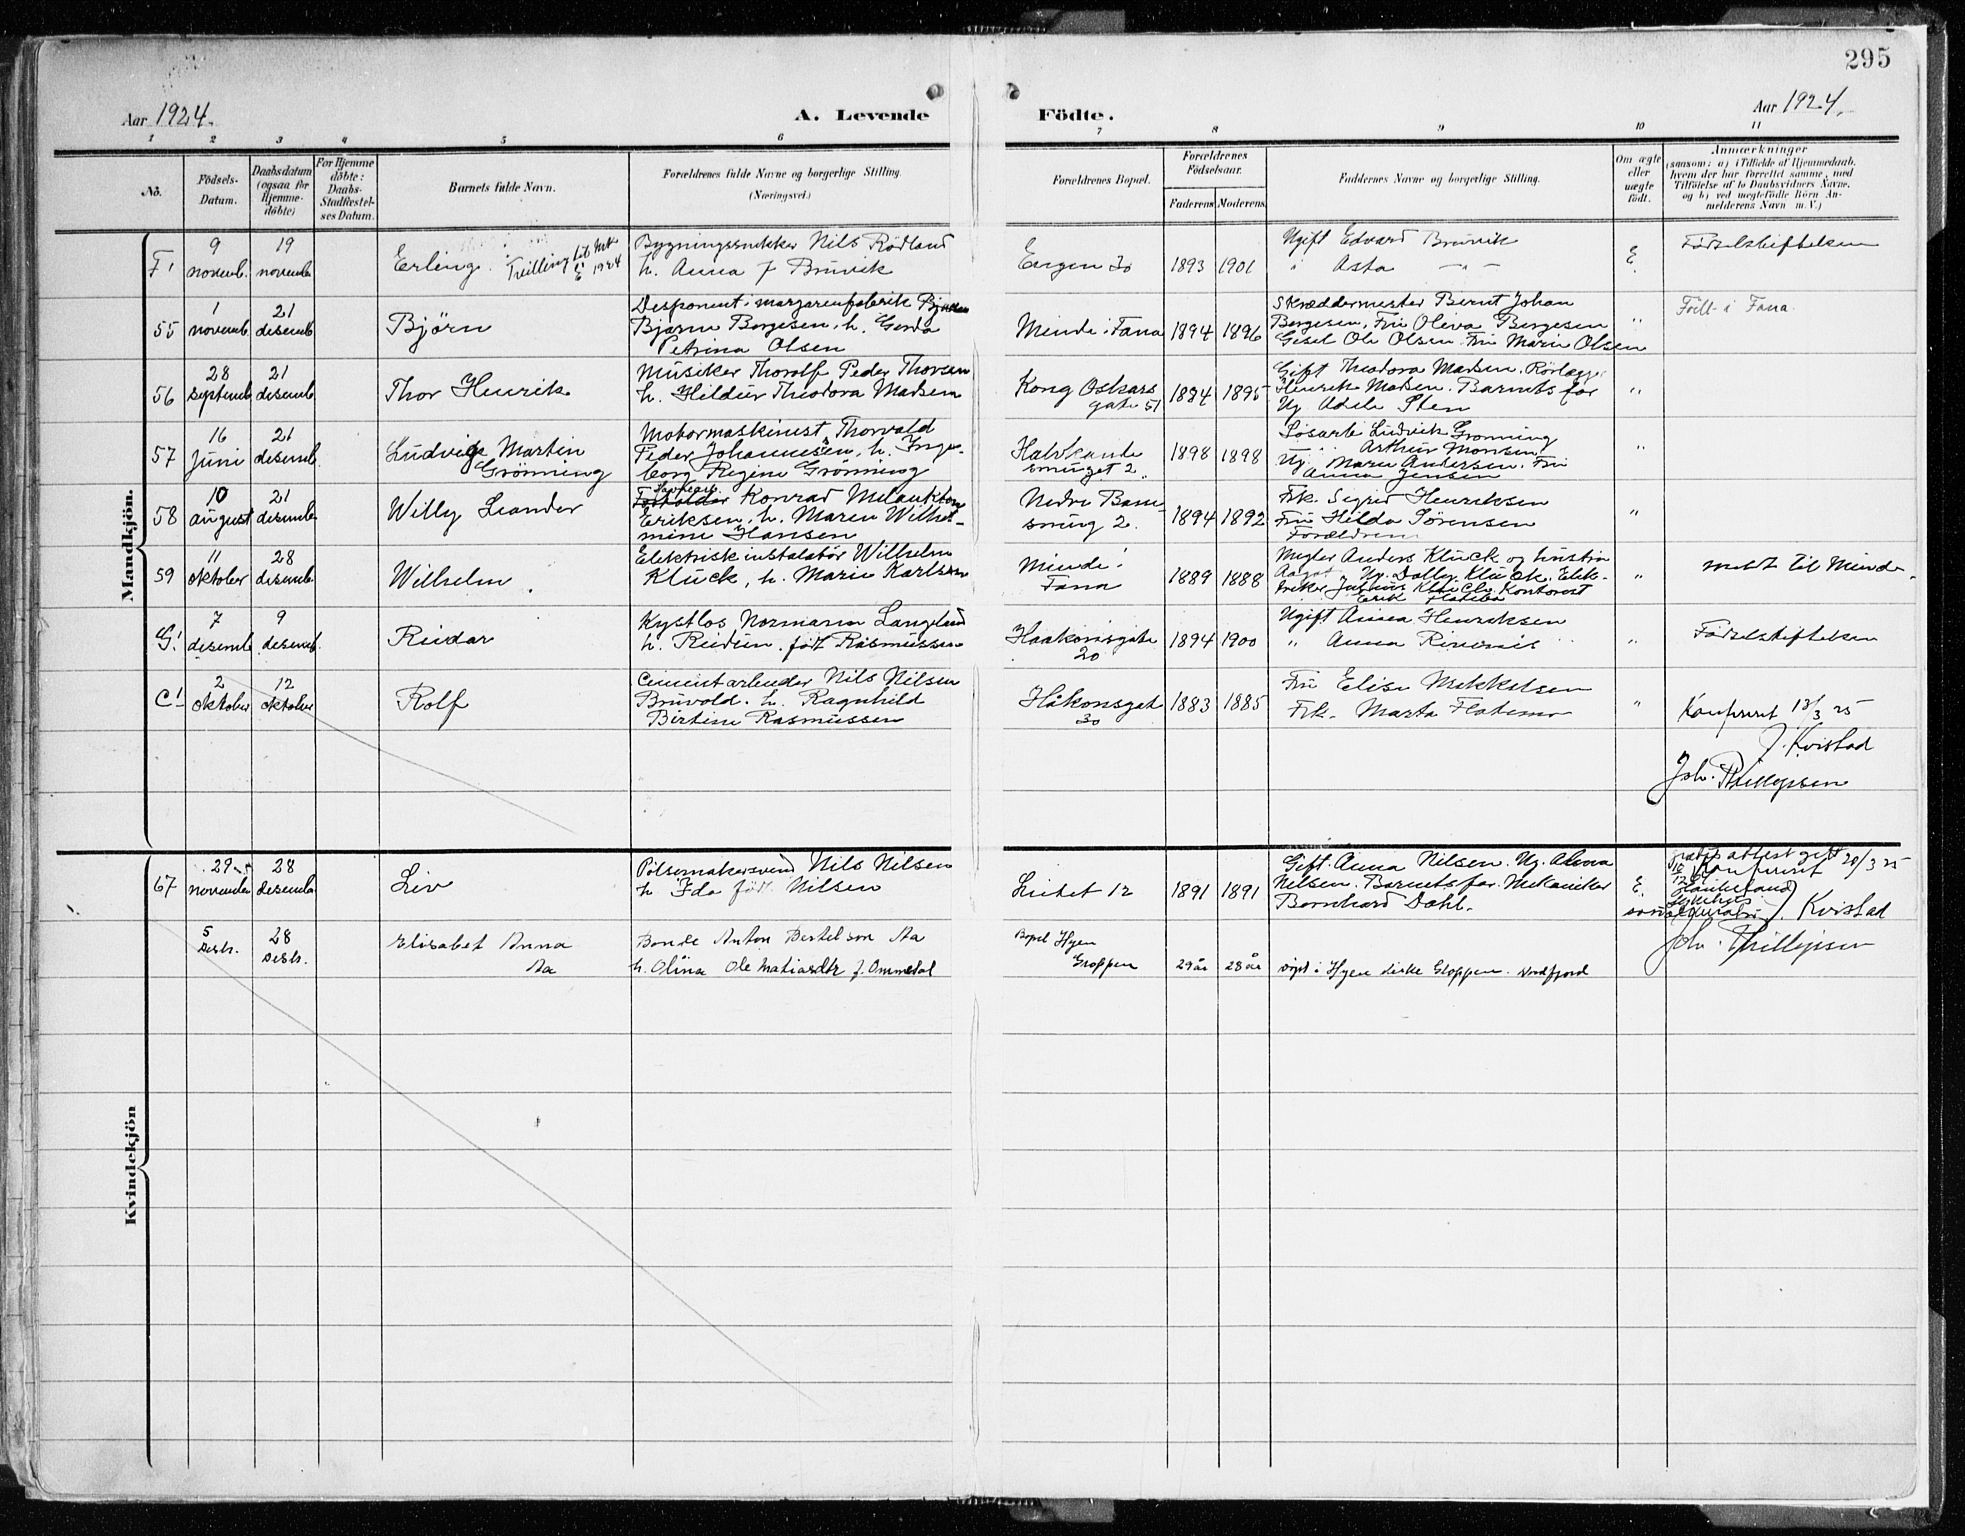 295
Aar 1924.
A. Levende Födte.
Aar 1924.
1 2 3 4 5 6 7 8 9 10 11
No.
Födsels-Datum.
Daabsdatum (ogsaa for Hjemme-döbte)
For Hjemme döbte: Daabs-Stadfestel-ses Datum.
Barnets fulde Navn.
Forældrenes fulde Navne og borgerlige Stilling.
(Næringsvei.)
Forældrenes Bopæl.
Forældrenes Födselsaar.
Faderens Moderens
Faddernes Navne og borgerlige Stilling.
Om ægte eller uægte födt.
Anmærkninger
(saasom: a) i Tilfælde af Hjemmedaab, hvem der har forrettet samme, med Tilföielse af to Daabsvidners Navne, og b) ved uegtefödte Börn An-melderens Navn m. V.)
Mandkjön.
F1
9 novemb.
19 novemb.
Erling. Tvilling til
1924
Bygningssnekker Nils Rödland
h. Anna f Bruvik
Engen 30
1893 1901
Ugift Edvard Bruvik
" Asta -"-
E.
Fødselstiftelsen
55
1 novemb.
21 desemb.
Björn
Desponent i margarinfabrik
Bjarne Borgesen, h. Gerda
Petrina Olsen
Minde i Fana
1894 1896
Skræddermester Bernt Johan
Borgesen, Fru Oliva Borgesen
Gesel Ole Olsen. Fru Marie Olsen
"
Född i Fana.
56
28 septemb.
21 desemb.
Thor Henrik
Musiker Thorolf Peder Thorsen
h. Hildur Theodora Madsen
Kong Oskars
gate 51
1884 1895
Gift Theodora Madsen. Rörlegger
Henrik Madsen. Barnets far
Ug. Adele Sten
"
57
16 Juni
21 desemb.
Ludvig Martin
Grönning
Motormaskinist Thorvald
Peder Johannesen, h. Inge-
borg Regine Grönning
Halvkande
smuget 2
1898 1898
Ludvik Gronning
Arthur Monsen
Ug. Maren Andersen. Fru
Anna Jensen
"
58
10 august
21 desemb.
Willy Leander
Konrad Melankton
Eriksen, h. Maren Wilhel-
mine Hansen
Nedre Bane
smug 2.
1894 1892
Frk. Sigrid Henriksen
Fru Hilda Sørensen
Forældrene
"
59
11 oktober
28 desemb.
Wilhelm
Elektriskinstalatör Wilhelm
Kluck, h. Marie Karlsen
Minde i
Fana
1889 1888
Megler Anders Kluck og hustru
Aagot, Ug. Dolly Kluck. Elek-
triker Julius Kluck. Kontorist
Erik
"
meldt til Minde.
G1
7 desemb.
9 desemb.
Reidar
Kystlos Normann Langeland
h. Reidun, født Rasmussen
Haakonsgate
20
1894 1900
Ugift Anna Henriksen
" Anna
"
Fødselstiftelsen
C1
2 oktober
12 oktober
Rolf
Cementarbeider Nils Nilsen
Bruvold. h. Ragnhild
Birtine Rasmussen
Håkonsgat
30
1883 1885
Fru Elise Mikkelsen
Frk. Marta Flatemo
"
Konfereret 18/3 25
J. Kvistad
Joh. Phillipsen
Kvindekjön
67
29 november
28 desemb.
Liv
Pölsemakersvend Nils Nilsen
h Ida født Nilsen
Lutet 12
1891 1891
Gift. Anna Nilsen. Ug. Alma
Nilsen. Barnets far. Mekaniker
Bernhard Dahl.
E.
attest 20/3 25
Konfereret
J. Kvistad
Joh. Phillipsen
5 Desbr.
28 Desbr.
Elisabet Anna
Aa
Bonde Anton Bertelson Aa
h. Olina Ole Matiasdtr f. Ommedal
Bopel Hyen
Gloppen
29 år 28 år
döpt i Hyen kirke Gloppen. Nordfjord